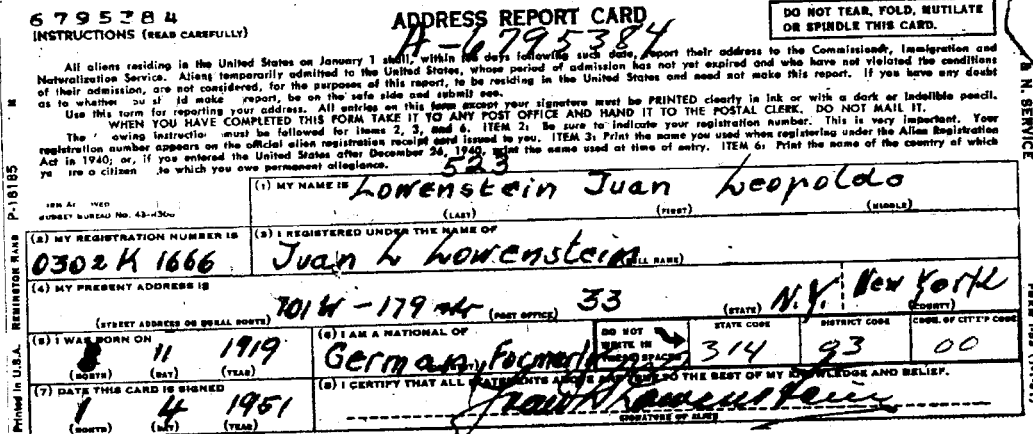 6795384
ADDRESS REPORT CARD
DO NOT TEAR, FOLD, MUTILATE
OR SPINDLE THIS CARD.
INSTRUCTIONS (READ CAREFULLY)
A-6795384
All aliens residing in the United States on January 1 shall, within ten days following such date, report their address to the Commissioner, Immigration and
Naturalization Service. Aliens temporarily admitted to the United States, whose period of admission has not yet expired and who have not violated the conditions
of their admission, are not considered, for the purposes of this report, to be residing in the United States and need not make this report. If you have any doubt
as to whether should make report, be on the safe side and submit one.
Use this form for reporting your address. All entries on this form except your signature must be PRINTED clearly in ink or with a dark or indelible pencil.
WHEN YOU HAVE COMPLETED THIS FORM TAKE IT TO ANY POST OFFICE AND HAND IT TO THE POSTAL CLERK. DO NOT MAIL IT.
The owing instruction must be followed for items 2, 3, and 6. ITEM 2: Be sure to indicate your registration number. This is very important. Your
registration number appears on the official alien registration receipt card issued to you. ITEM 3: Print the name you used when registering under the Alien Registration
Act in 1940; or, if you entered the United States after December 26, 1940, print the name used at time of entry. ITEM 6: Print the name of the country of which
are a citizen to which you owe permanent allegiance.
523
(1) MY NAME IS Lowenstein Juan Leopoldo
(LAST) (FIRST) (MIDDLE)
BUDGET BUREAU No. 43-R300
(2) MY REGISTRATION NUMBER IS
0302 K 1666
(3) I REGISTERED UNDER THE NAME OF
Juan L Lowenstein
(4) MY PRESENT ADDRESS IS
701 W - 179 33 N.Y. New York
(STREET ADDRESS OR RURAL ROUTE) (POST OFFICE) (STATE) (COUNTY)
(5) I WAS BORN ON
11 1919
(MONTH) (DAY) (YEAR)
(6) I AM A NATIONAL OF
German, Formerly
DO NOT
WRITE IN
THESE SPACES
STATE CODE
314
DISTRICT CODE
93
CODE OF CIT'Z'P CODE
00
(7) DATE THIS CARD IS SIGNED
1 4 1951
(MONTH) (DAY) (YEAR)
(8) I CERTIFY THAT ALL STATEMENTS ABOVE ARE TRUE TO THE BEST OF MY KNOWLEDGE AND BELIEF.
Juan L Lowenstein
SIGNATURE OF ALIEN
Printed in U.S.A. REMINGTON RAND P-18185
N. SERVICE